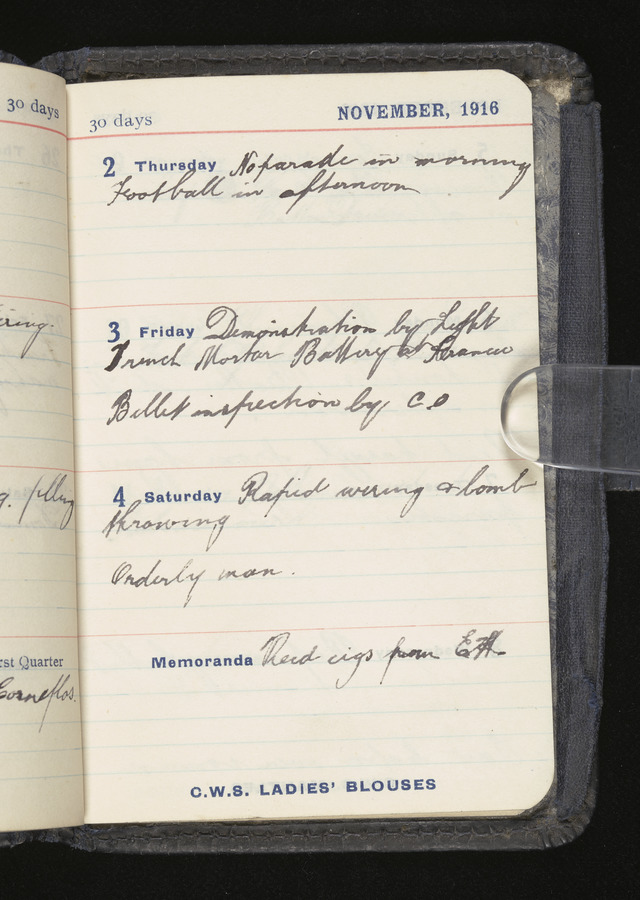 30 days
ering.
g. filling
rst Quarter
30 days
NOVEMBER, 1916
2 Thursday No parade in morning
Football in afternoon
3 Friday Demonstration by Light
Trench Mortar Battery at
Billet inspection by C.O
4 Saturday Rapid wering & bomb
throwing
Orderly man.
Memoranda Recd cigs from
C.W.S. LADIES' BLOUSES